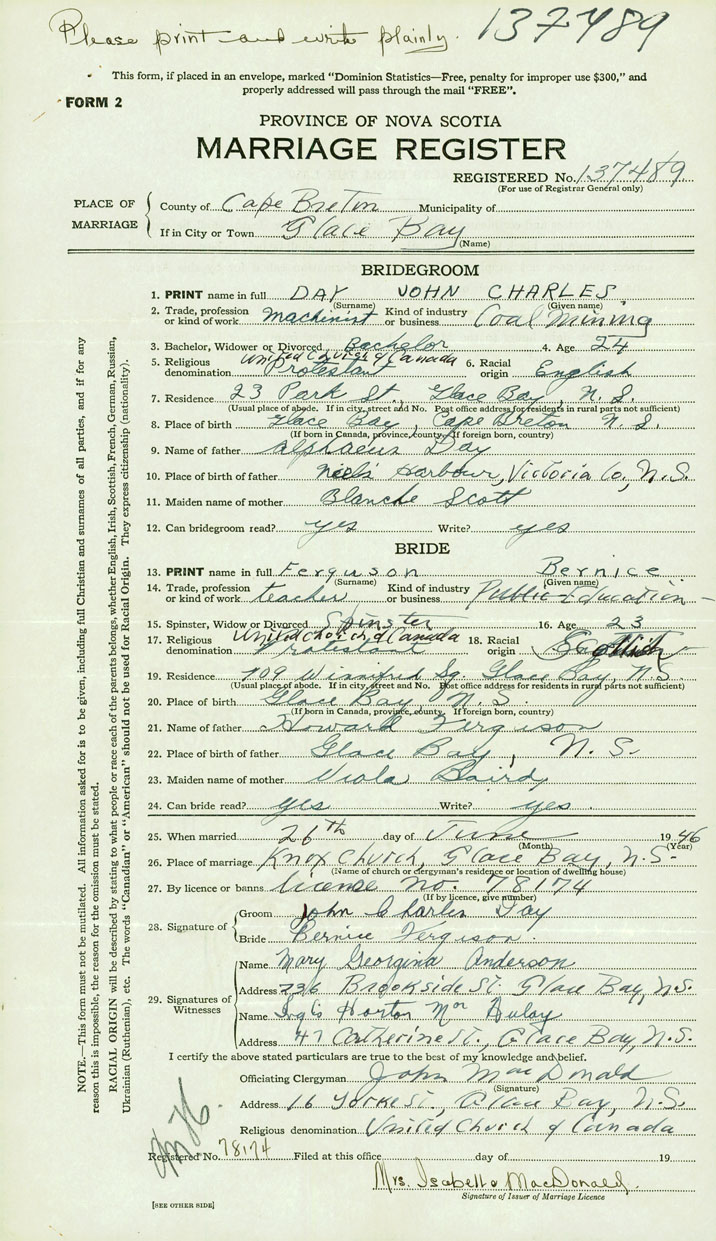 Please print and write plainly. 137489
This form, if placed in an envelope, marked "Dominion Statistics—Free, penalty for improper use $300," and
properly addressed will pass through the mail "FREE".
FORM 2
PROVINCE OF NOVA SCOTIA
MARRIAGE REGISTER
REGISTERED No. 137489
(For use of Registrar General only)
PLACE OF MARRIAGE
County of Cape Breton Municipality of
If in City or Town Glace Bay
(Name)
BRIDEGROOM
1. PRINT name in full DAY JOHN CHARLES
(Surname) (Given name)
2. Trade, profession or kind of work machinist Kind of industry or business Coal Mining
3. Bachelor, Widower or Divorced Bachelor 4. Age 24
5. Religious denomination United Church of Canada Protestant 6. Racial origin English
7. Residence 23 Park St., Glace Bay, N.S.
(Usual place of abode. If in city, street and No. Post office address for residents in rural parts not sufficient)
8. Place of birth Glace Bay, Cape Breton N.S.
(If born in Canada, province, county. If foreign born, country)
9. Name of father Alphaeus Day
10. Place of birth of father Neil's Harbour, Victoria Co, N.S.
11. Maiden name of mother Blanche Scott
12. Can bridegroom read? yes Write? yes
BRIDE
13. PRINT name in full Ferguson Bernice
(Surname) (Given name)
14. Trade, profession or kind of work teacher Kind of industry or business Public Education
15. Spinster, Widow or Divorced Spinster 16. Age 23
17. Religious denomination United Church of Canada Protestant 18. Racial origin Scottish
19. Residence 109 Winnifred Sq. Glace Bay, N.S.
(Usual place of abode. If in city street and No. Post office address for residents in rural parts not sufficient)
20. Place of birth Glace Bay, N.S.
(If born in Canada, province, county. If foreign born, country)
21. Name of father Howard Ferguson
22. Place of birth of father Glace Bay, N.S.
23. Maiden name of mother Viola Baird
24. Can bride read? yes Write? yes
25. When married 26th day of June 1946
(Month) (Year)
26. Place of marriage Knox Church, Glace Bay, N.S.
(Name of church or clergyman's residence or location of dwelling house)
27. By licence or banns license no. 78174
(If by licence, give number)
28. Signature of
Groom John Charles Day
Bride Bernice Ferguson
29. Signatures of Witnesses
Name Mary Georgina Anderson
Address 236 Brookside St. Glace Bay, N.S.
Name Horton
Address 47 Catherine St., Glace Bay, N.S.
I certify the above stated particulars are true to the best of my knowledge and belief.
Officiating Clergyman John MacDonald
(Signature)
Address 16 Yorke St, Glace Bay, N.S.
Religious denomination United Church of Canada
Registered No. 78174 Filed at this office day of 19
Mrs. Isabelle MacDonald
Signature of Issuer of Marriage Licence
[SEE OTHER SIDE]
NOTE.—This form must not be mutilated. All information asked for is to be given, including full Christian and surnames of all parties, and if for any
reason this is impossible, the reason for the omission must be stated.
RACIAL ORIGIN will be described by stating to what people or race each of the parents belongs, whether English, Irish, Scottish, French, German, Russian,
Ukrainian (Ruthenian), etc. The words "Canadian" or "American" should not be used for Racial Origin. They express citizenship (nationality).